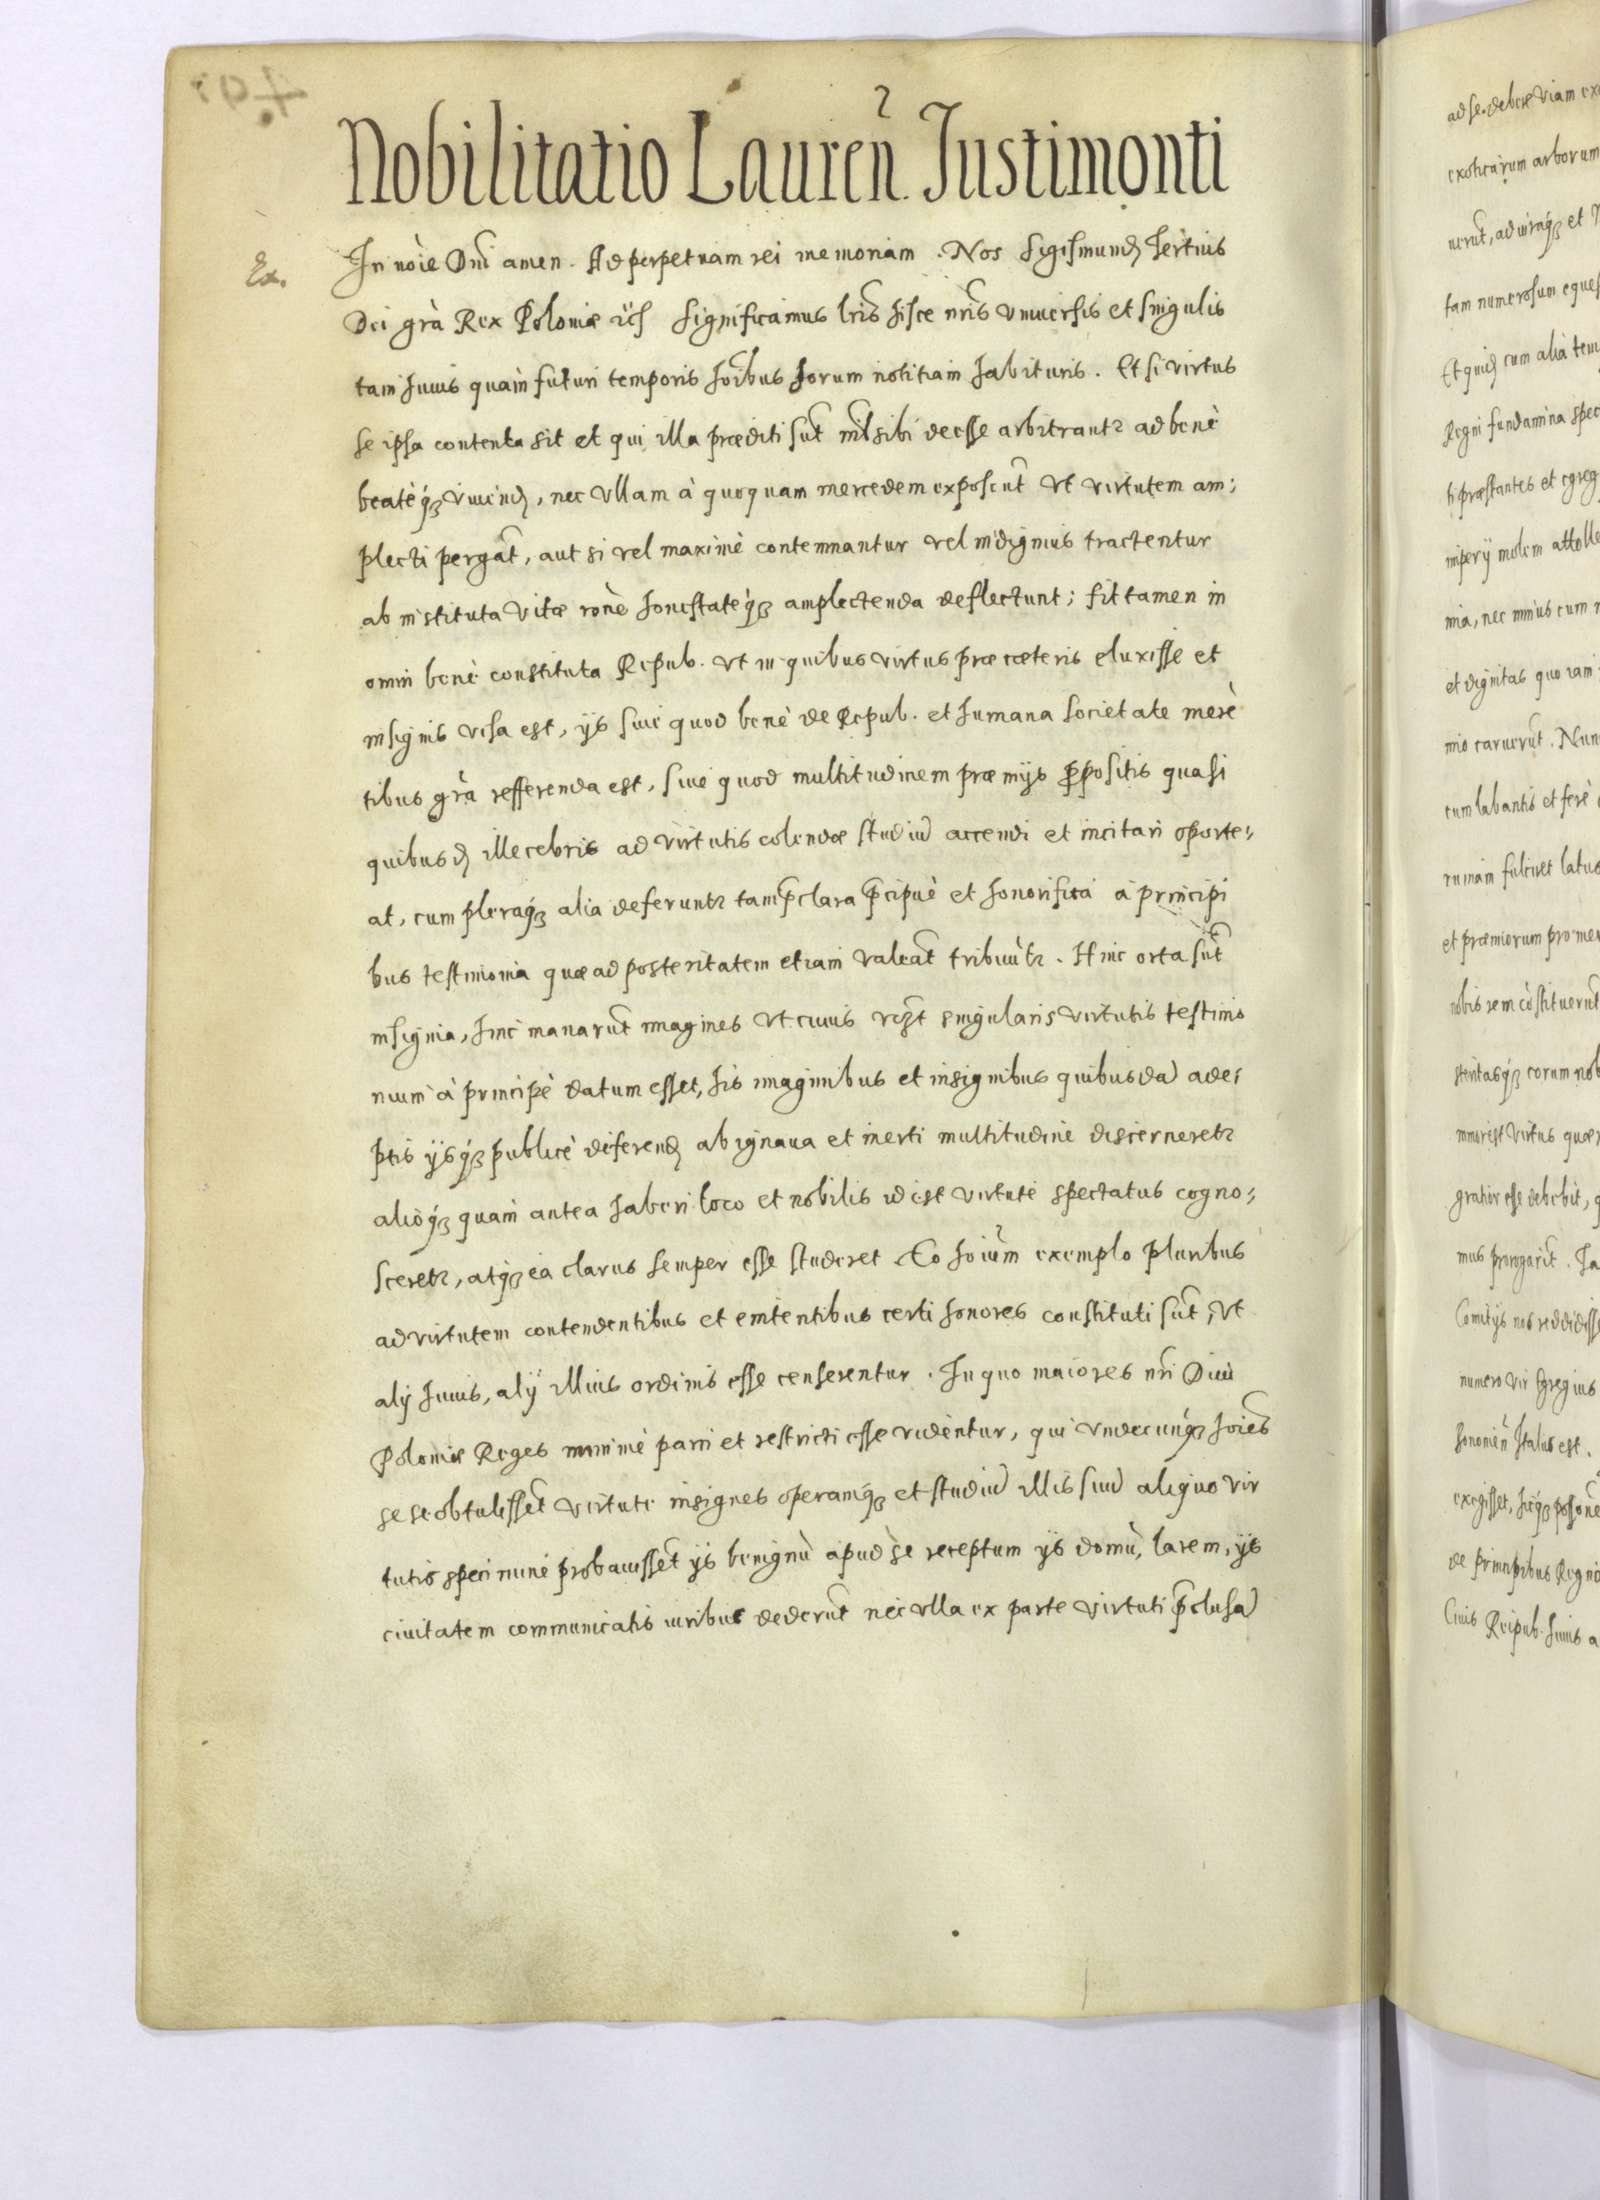 Nobilitatio Laureñ. Justimonti
Ex.
In noie Dni amen. Ad perpetuam rei memoriam. Nos Sigismund9 Tertius
Dei grà Rex Poloniæ etc significamus lris hisce nris vniuersis et singulis
tam huius quàm futuri temporis hoibus horum notitiam habituris. Et si virtus
se ipsa contenta sit et qui illa præditi sũt nil sibi deesse arbitrantr ad benè
beatèq3 viuend, nec vllam à quoquam mercedem exposcũt vt virtutem am:
plecti pergãt, aut si vel maximè contemnantur vel indignius tractentur
ab instituta vitæ ronè honestateq3 amplectenda deflectunt; fit tamen in
omni benè constituta Repub. vt in quibus virtus præ cæteris eluxisse et
insignis visa est, ijs siue quod benè de Repub. et humana societate merè
tibus grà refferenda est, siue quod multitudinem præmijs propositis quasi
quibusd illecebris ad virtutis colendæ studiũ accendi et incitari oporte:
at, cum pleraq3 alia deferuntr tam pclara pcipuè et honorifica à principi
bus testimonia quæ ad posteritatem etiam valeãt tribuùtr. Hinc orta sũt
insignia, hinc manarũt imagines vt cuius singularis virtutis testimo
nium à principè datum esset, his imaginibus et insignibus quibusdã ade:
ptis ijsq3 publicè deferend ab ignaua et inerti multitudine discerneretr
alioq3 quàm antea haberi loco et nobilis id est virtute spectatus cogno:
sceretr, atq3 ea clarus semper esse studeret. Eo hoium exemplo pluribus
ad virtutem contendentibus et enitentibus certi honores constituti sũt, vt
alij huius, alij illius ordinis esse censerentur. In quo maiores nri Diui
Poloniæ Reges minimè parci et restricti esse vidèntur, qui vndecunq3 hoies
se se obtulissẽt virtute insignes operamq3 et studiũ illis suũ aliquo vir
tutis specimine probauissẽt ijs benignù apud se receptum ijs domù, larem, ijs
ciuitatem communicatis iuribus dederũt nec vlla ex parte virtuti pclusã
ad se debere viam
exoticarum arborum
nerũt, ad vtraq3 et
tam numerosum eques
Et quid cum alia tem
Regni fundamina spec
præstantes et egreg
imperij molem attolle
nia, nec minus cum
et dignitas quo iam
mio caruerũt. Nun
cum labantis et ferè
ruinam fulciret latus
et præmiorum pro me
nobis rem còstituerũt
steritasq3 eorum nob
virtus quæ
gratior esse debebit,
mus prorogarit. Ia
Comitijs nos reddidiss
numero vir Egregius
Italus est.
exegisset,
de principibus Regni
Ciuis Reipub. huius a